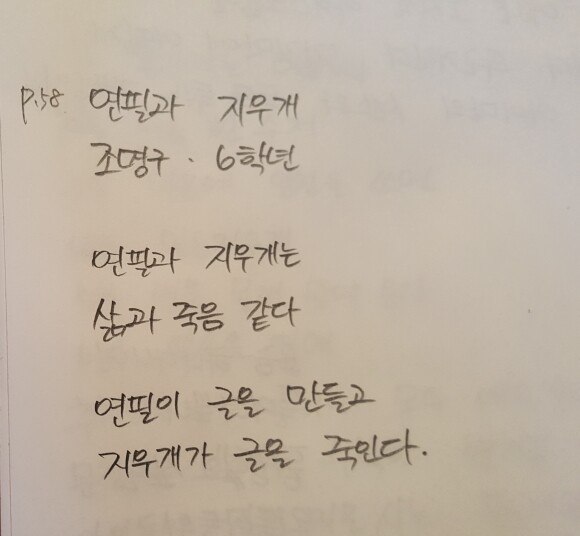 p.58. 연필과 지우개
조명구 · 6학년
연필과 지우개는
삶과 죽음 같다
연필이 글을 만들고
지우개가 글을 죽인다.